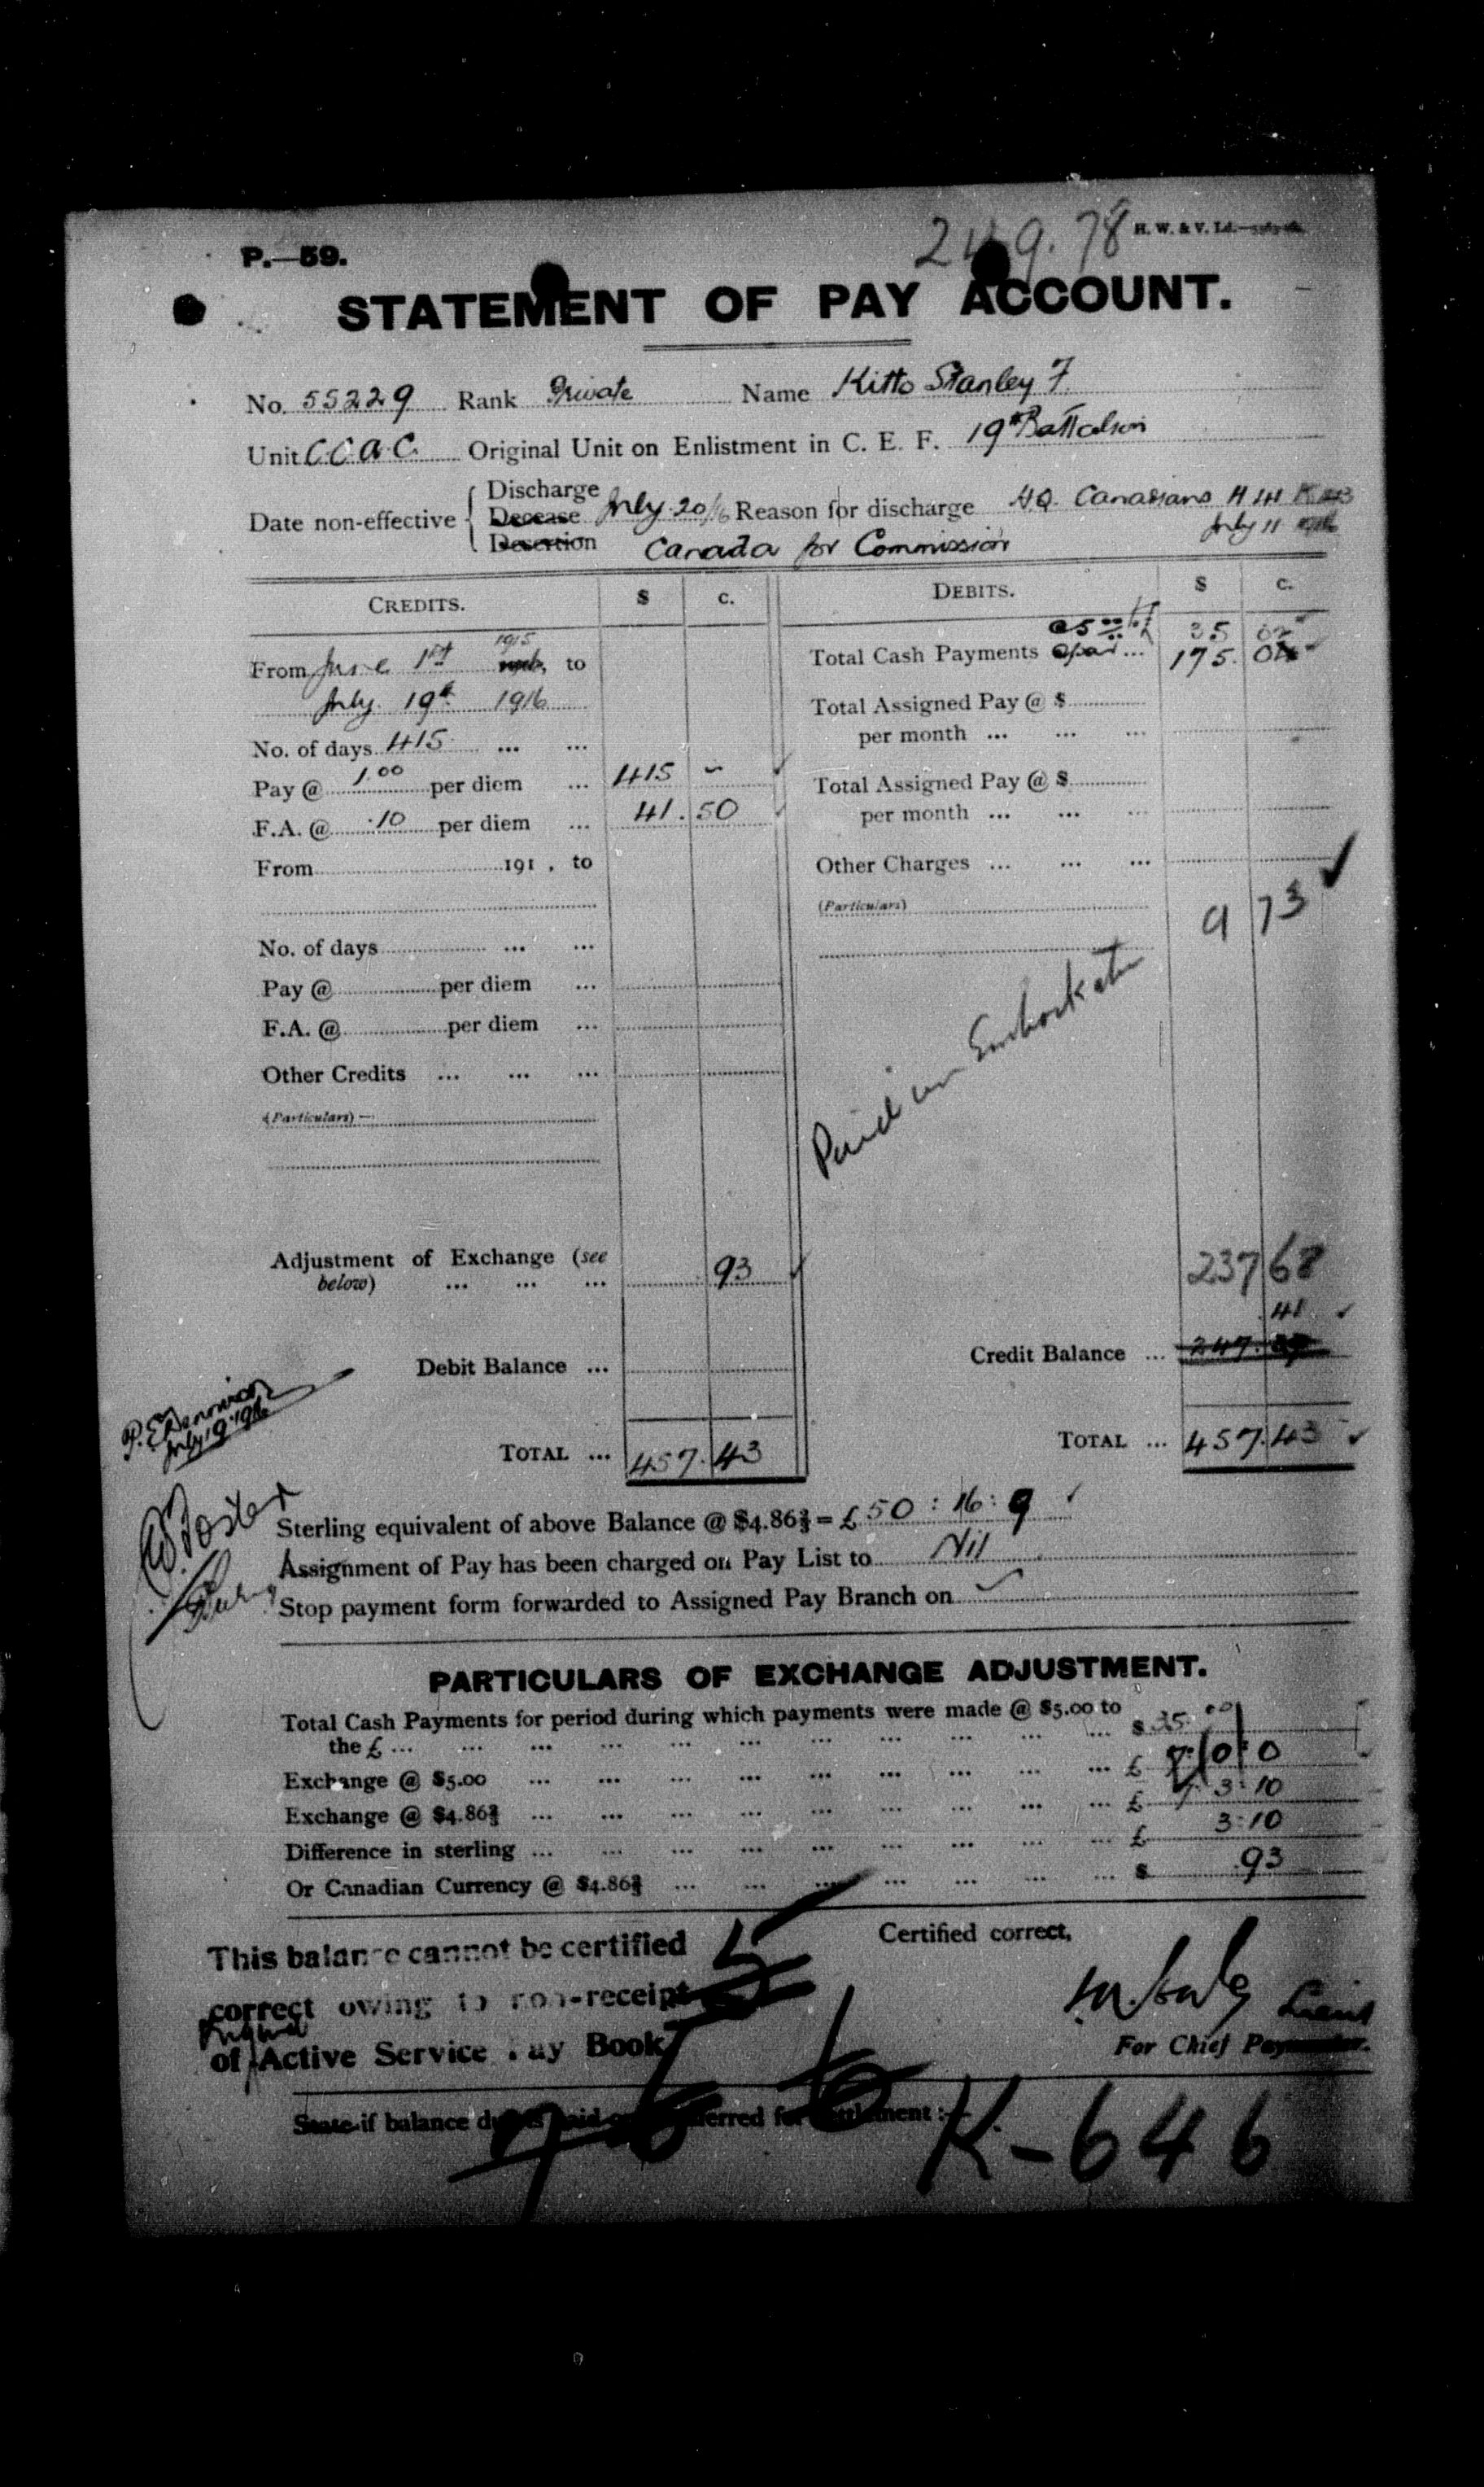 249.78 H. W. & V. Ld.
P.—59.
STATEMENT OF PAY ACCOUNT.
No. 55229 Rank Private Name Kitto Stanley F
Unit C C A C. Original Unit on Enlistment in C. E. F. 19th Battalion
Date non-effective { Discharge Decease Desertion July 20/16 Reason for discharge HQ. Canadians
July 11 1916
Canada for Commission
CREDITS. $ c. DEBITS. $ c.
From June 1st 1915, to
July 19th 1916
No. of days 415 ... ...
Pay @ 1.00 per diem ... 415 -
F.A. @ .10 per diem ... 41.50
From 191 , to
No. of days ... ...
Pay @ per diem ...
F.A. @ per diem ...
Other Credits ... ... ...
(Particulars) —
Adjustment of Exchange (see
below) ... ... ... 93
Debit Balance ...
TOTAL ... 457.43
@ 5.00 35
Total Cash Payments ... 175.04
Total Assigned Pay @ $
per month ... ... ...
Total Assigned Pay @ $
per month ... ... ...
Other Charges ... ... ...
(Particulars)
9 73
Paid on Embarkation
237 68
.41
Credit Balance ... 247.
TOTAL ... 457.43
July 19 1916
Sterling equivalent of above Balance @ $4.86⅔ = £ 50 : 16 : 9
Assignment of Pay has been charged on Pay List to Nil
Stop payment form forwarded to Assigned Pay Branch on
PARTICULARS OF EXCHANGE ADJUSTMENT.
Total Cash Payments for period during which payments were made @ $5.00 to
the £ ... ... ... ... ... ... ... ... ... ... ... $ 35.00
Exchange @ $5.00 ... ... ... ... ... ... ... ... ... £ 7:0:0
Exchange @ $4.86⅔ ... ... ... ... ... ... ... ... ... £ 7:3:10
Difference in sterling ... ... ... ... ... ... ... ... ... £ 3:10
Or Canadian Currency @ $4.86⅔ ... ... ... ... ... ... ... $ .93
This balance cannot be certified
correct owing to non-receipt
of Active Service Pay Book
Certified correct,
Lieut
For Chief Paymaster.
State if balance due is paid or transferred for settlement :—
K-646